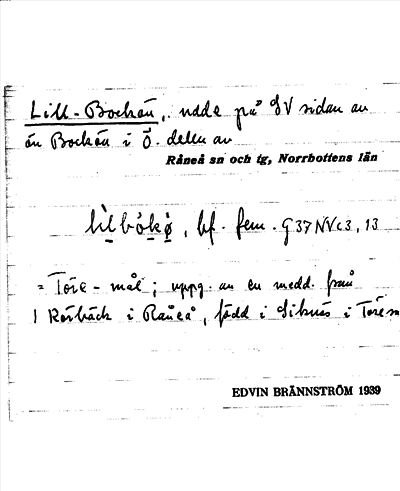 Lill-Bockån, udde på SV sidan av
ån Bockån i Ö. delen av
Råneå sn och tg, Norrbottens län
bf. fem. G37NVc3, 13
= Töre-mål; uppg. av en medd. från
Rörbäck i Råneå, född i Siknäs i Töre
EDVIN BRÄNNSTRÖM 1939